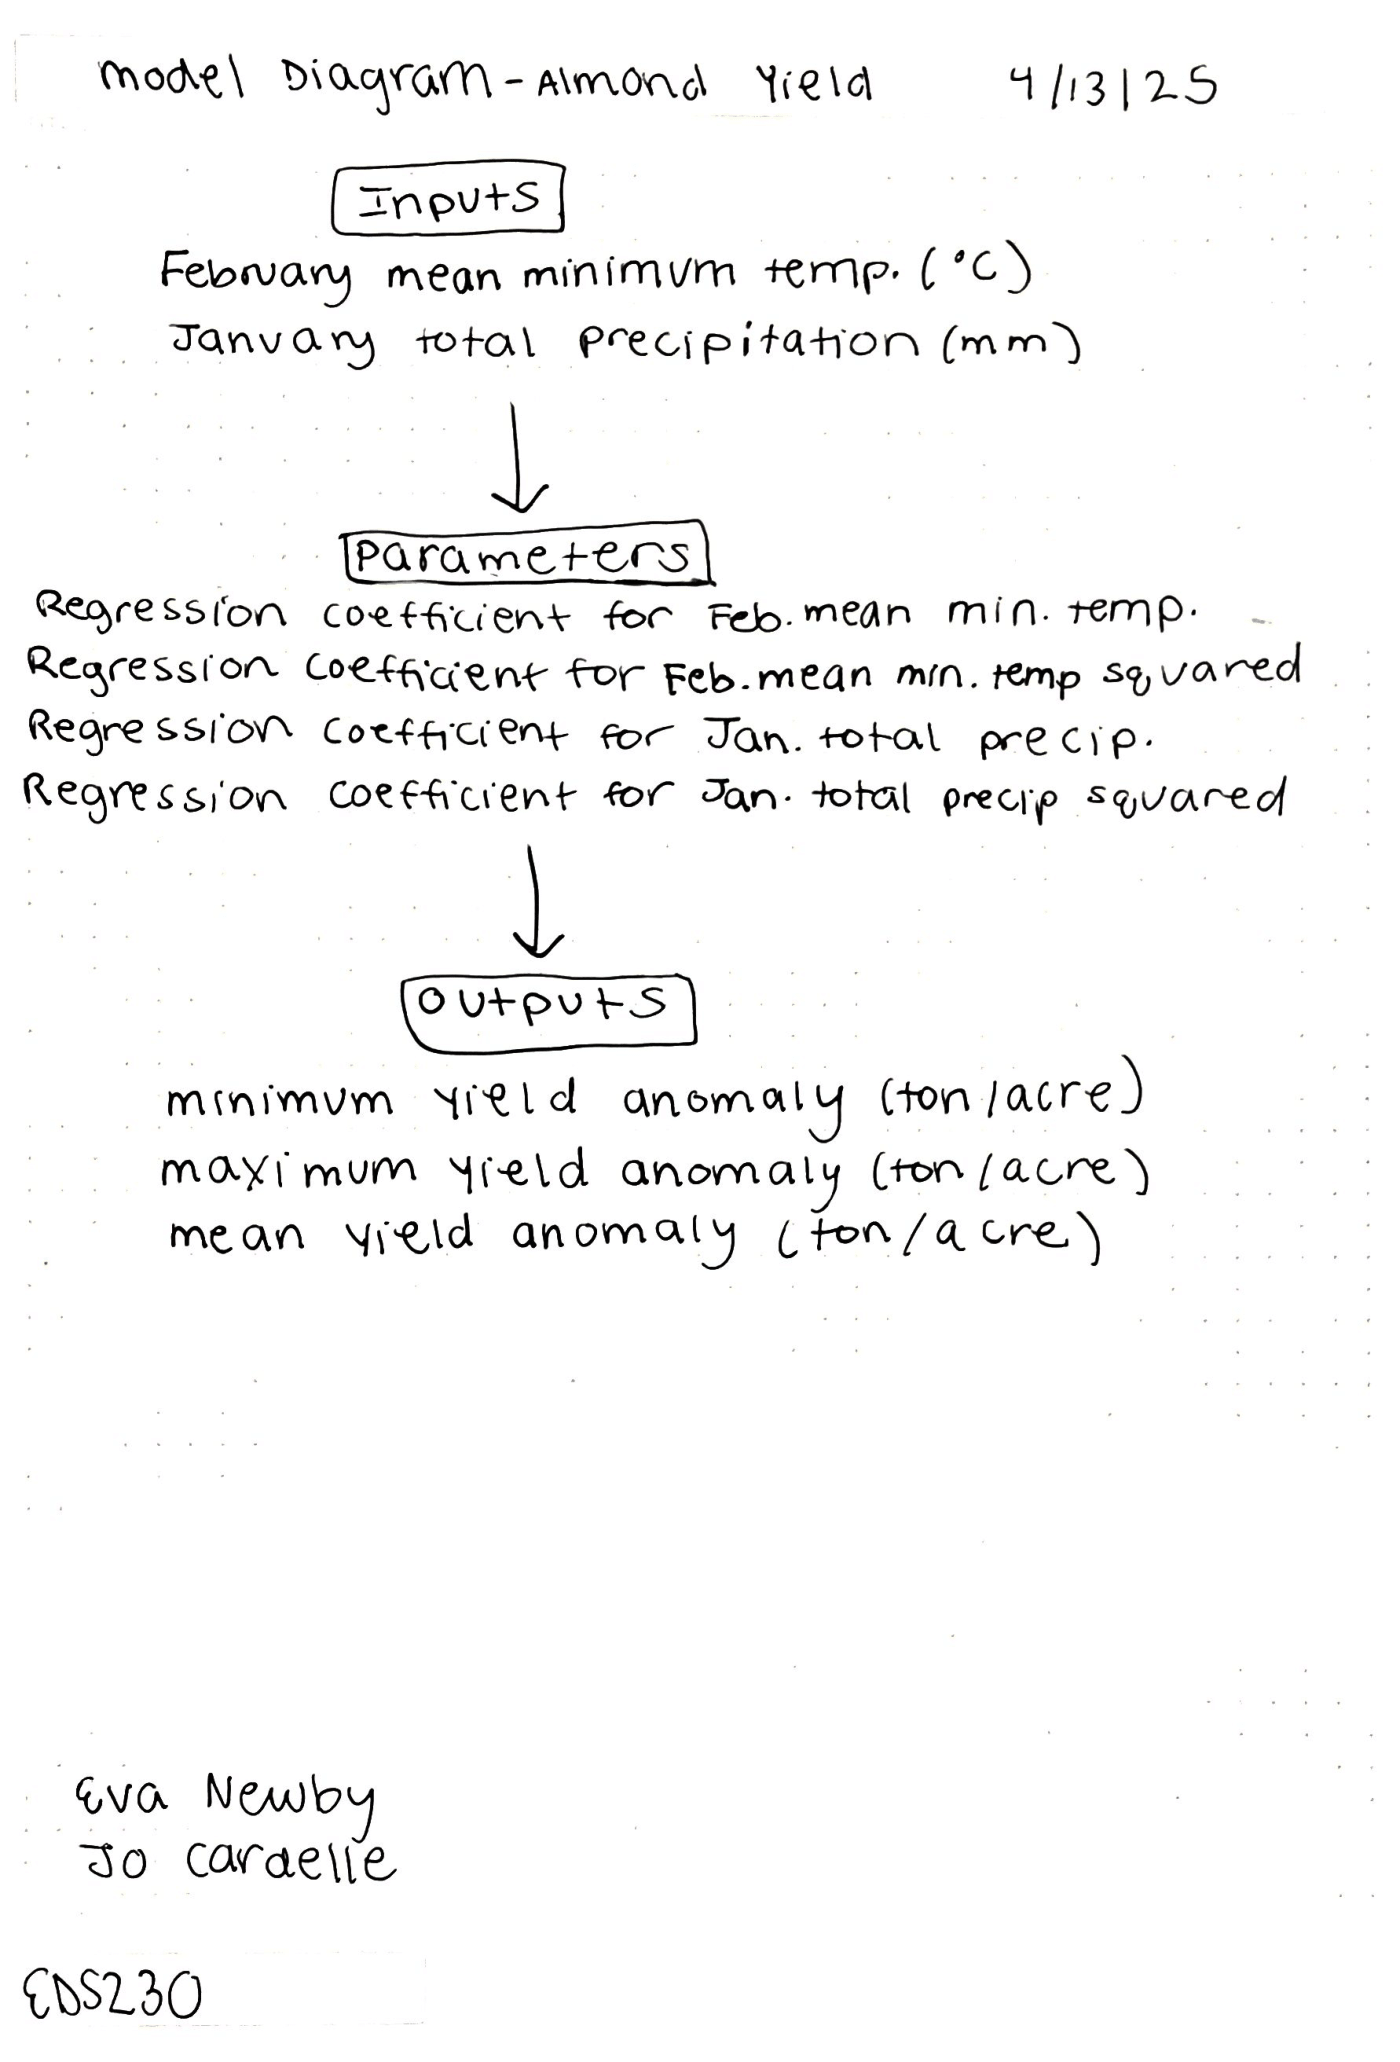 Model Diagram - Almond Yield 4/13/25
Inputs
February mean minimum temp. (°C)
January total precipitation (mm)
Parameters
Regression coefficient for Feb. mean min. temp.
Regression coefficient for Feb. mean min. temp squared
Regression coefficient for Jan. total precip.
Regression coefficient for Jan. total precip squared
Outputs
minimum yield anomaly (ton/acre)
maximum yield anomaly (ton/acre)
mean yield anomaly (ton/acre)
Eva Newby
Jo Cardelle
EDS230